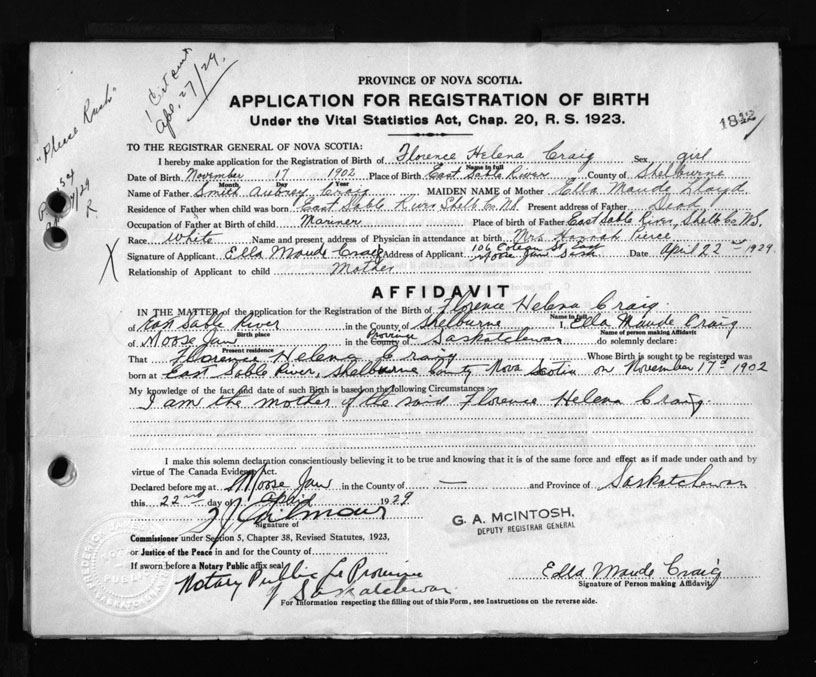 "Please Rush"
1 Cert cut
Apl. 27/29.
1842
PROVINCE OF NOVA SCOTIA.
APPLICATION FOR REGISTRATION OF BIRTH
Under the Vital Statistics Act, Chap. 20, R. S. 1923.
TO THE REGISTRAR GENERAL OF NOVA SCOTIA:
I hereby make application for the Registration of Birth of Florence Helena Craig Sex girl
Name in full
Date of Birth November 17 1902 Place of Birth East Sable River County of Shelburne
Month Day Year
Name of Father Smith Aubrey Craig MAIDEN NAME of Mother Ella Maude Lloyd
Residence of Father when child was born East Sable River Shelb Co NS Present address of Father Dead
Occupation of Father at Birth of child Mariner Place of birth of Father East Sable River, Shelb Co N.S.
Race White Name and present address of Physician in attendance at birth Mrs Hannah Pierce
Signature of Applicant Ella Maude Craig Address of Applicant 106 St East Moose Jaw Sask Date April 22nd 1929
Relationship of Applicant to child Mother
AFFIDAVIT
IN THE MATTER of the application for the Registration of the Birth of Florence Helena Craig
Name in full
of East Sable River in the County of Shelburne I, Ella Maude Craig
Birth place Name of person making Affidavit
of Moose Jaw in the County of Province Saskatchewan do solemnly declare:
Present residence
That Florence Helena Craig Whose Birth is sought to be registered was
born at East Sable River, Shelburne County Nova Scotia on November 17th 1902
My knowledge of the fact and date of such Birth is based on the following Circumstances
I am the mother of the said Florence Helena Craig.
I make this solemn declaration conscientiously believing it to be true and knowing that it is of the same force and effect as if made under oath and by
virtue of The Canada Evidence Act.
Declared before me at Moose Jaw in the County of — and Province of Saskatchewan
this 22nd day of April 1929
Gilmour
Signature of
G. A. McINTOSH,
DEPUTY REGISTRAR GENERAL
Commissioner under Section 5, Chapter 38, Revised Statutes, 1923,
or Justice of the Peace in and for the County of
If sworn before a Notary Public affix seal
Notary Public Province
of Saskatchewan.
Ella Maude Craig
Signature of Person making Affidavit
For Information respecting the filling out of this Form, see Instructions on the reverse side.